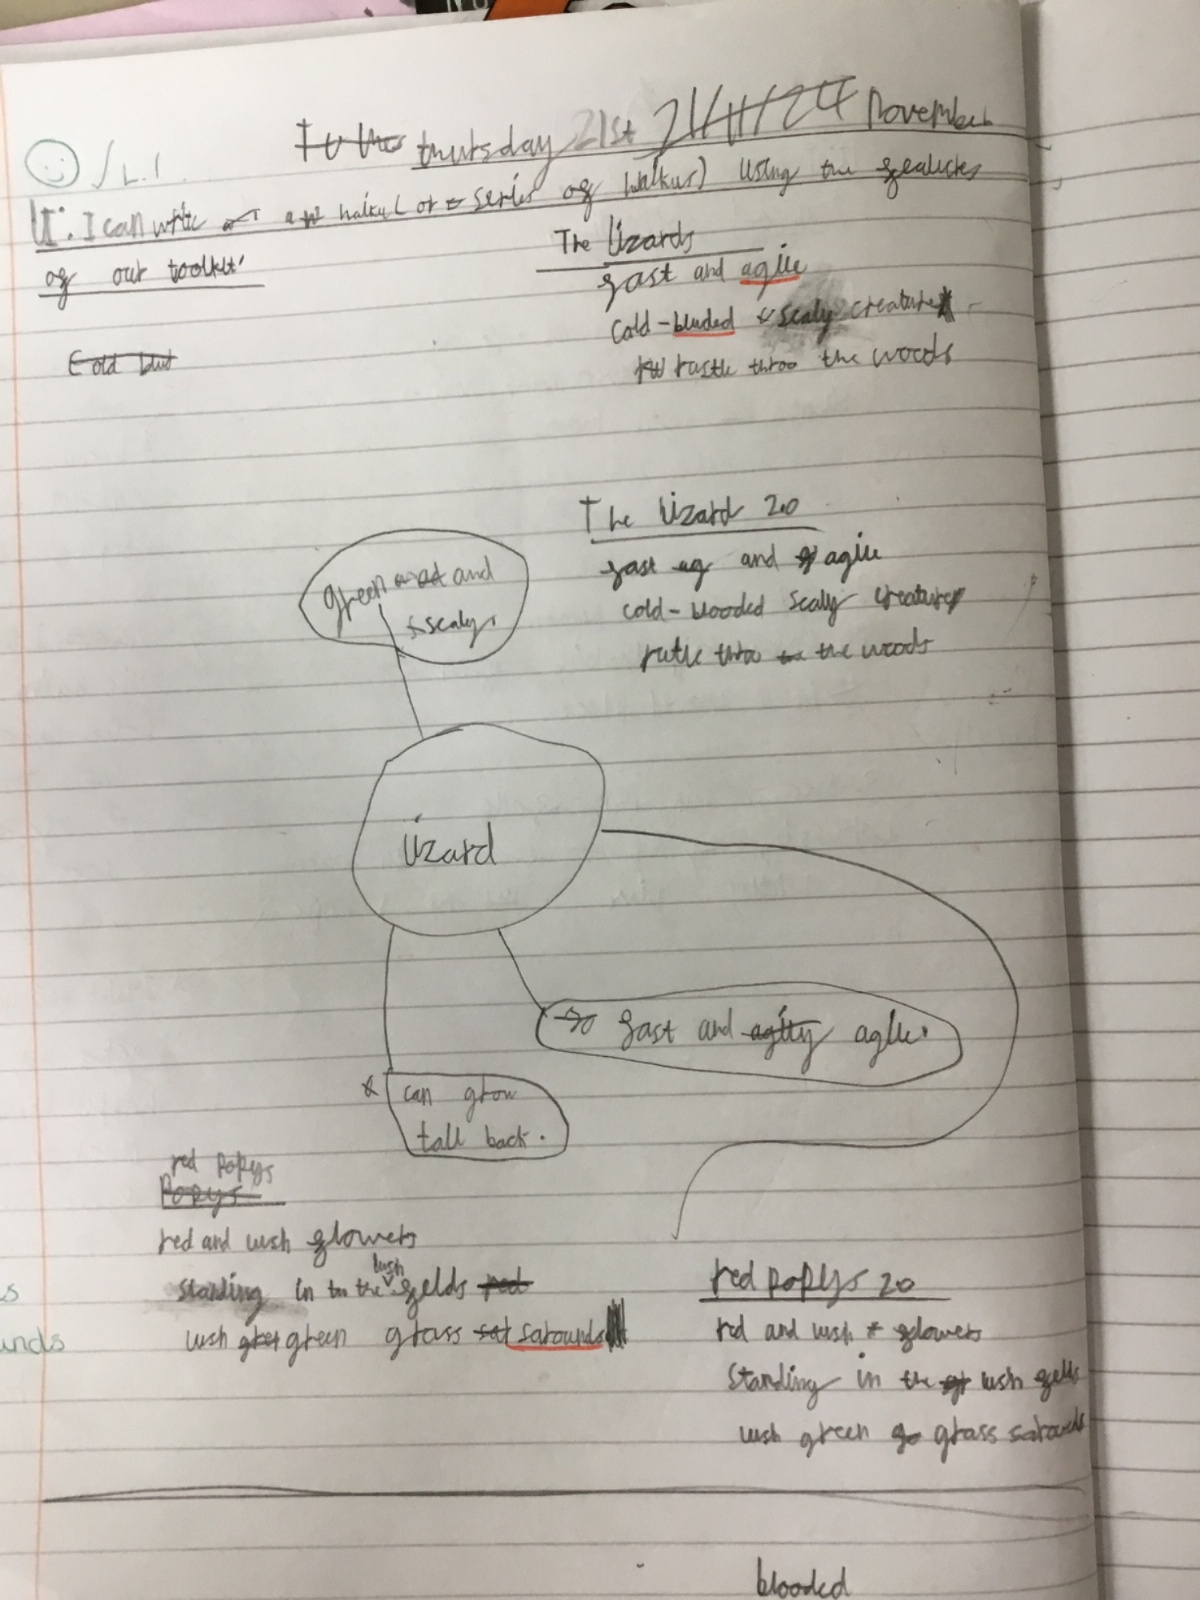 thursday 21st 21/11/24 November
L.I.
LI: I can write a haiku (or series of haikus) using the featuers
of our toolkit'
The Lizards
fast and agile
Cold-bluded scaly creature
rustle throo the woods
Cold blut
The lizard 2.0
fast ag and agile
cold-blooded scaly creature
rutle throo the woods
green and
scaly.
lizard
fast and agilty agile.
can grow
tall back.
red Popys
Popys
red and lush flowers
standing in the lush felds red
lush green grass sat sarounds
s
unds
red popys 2.0
red and lush flowers
Standing in the lush felds
lush green grass sarounds
blooded